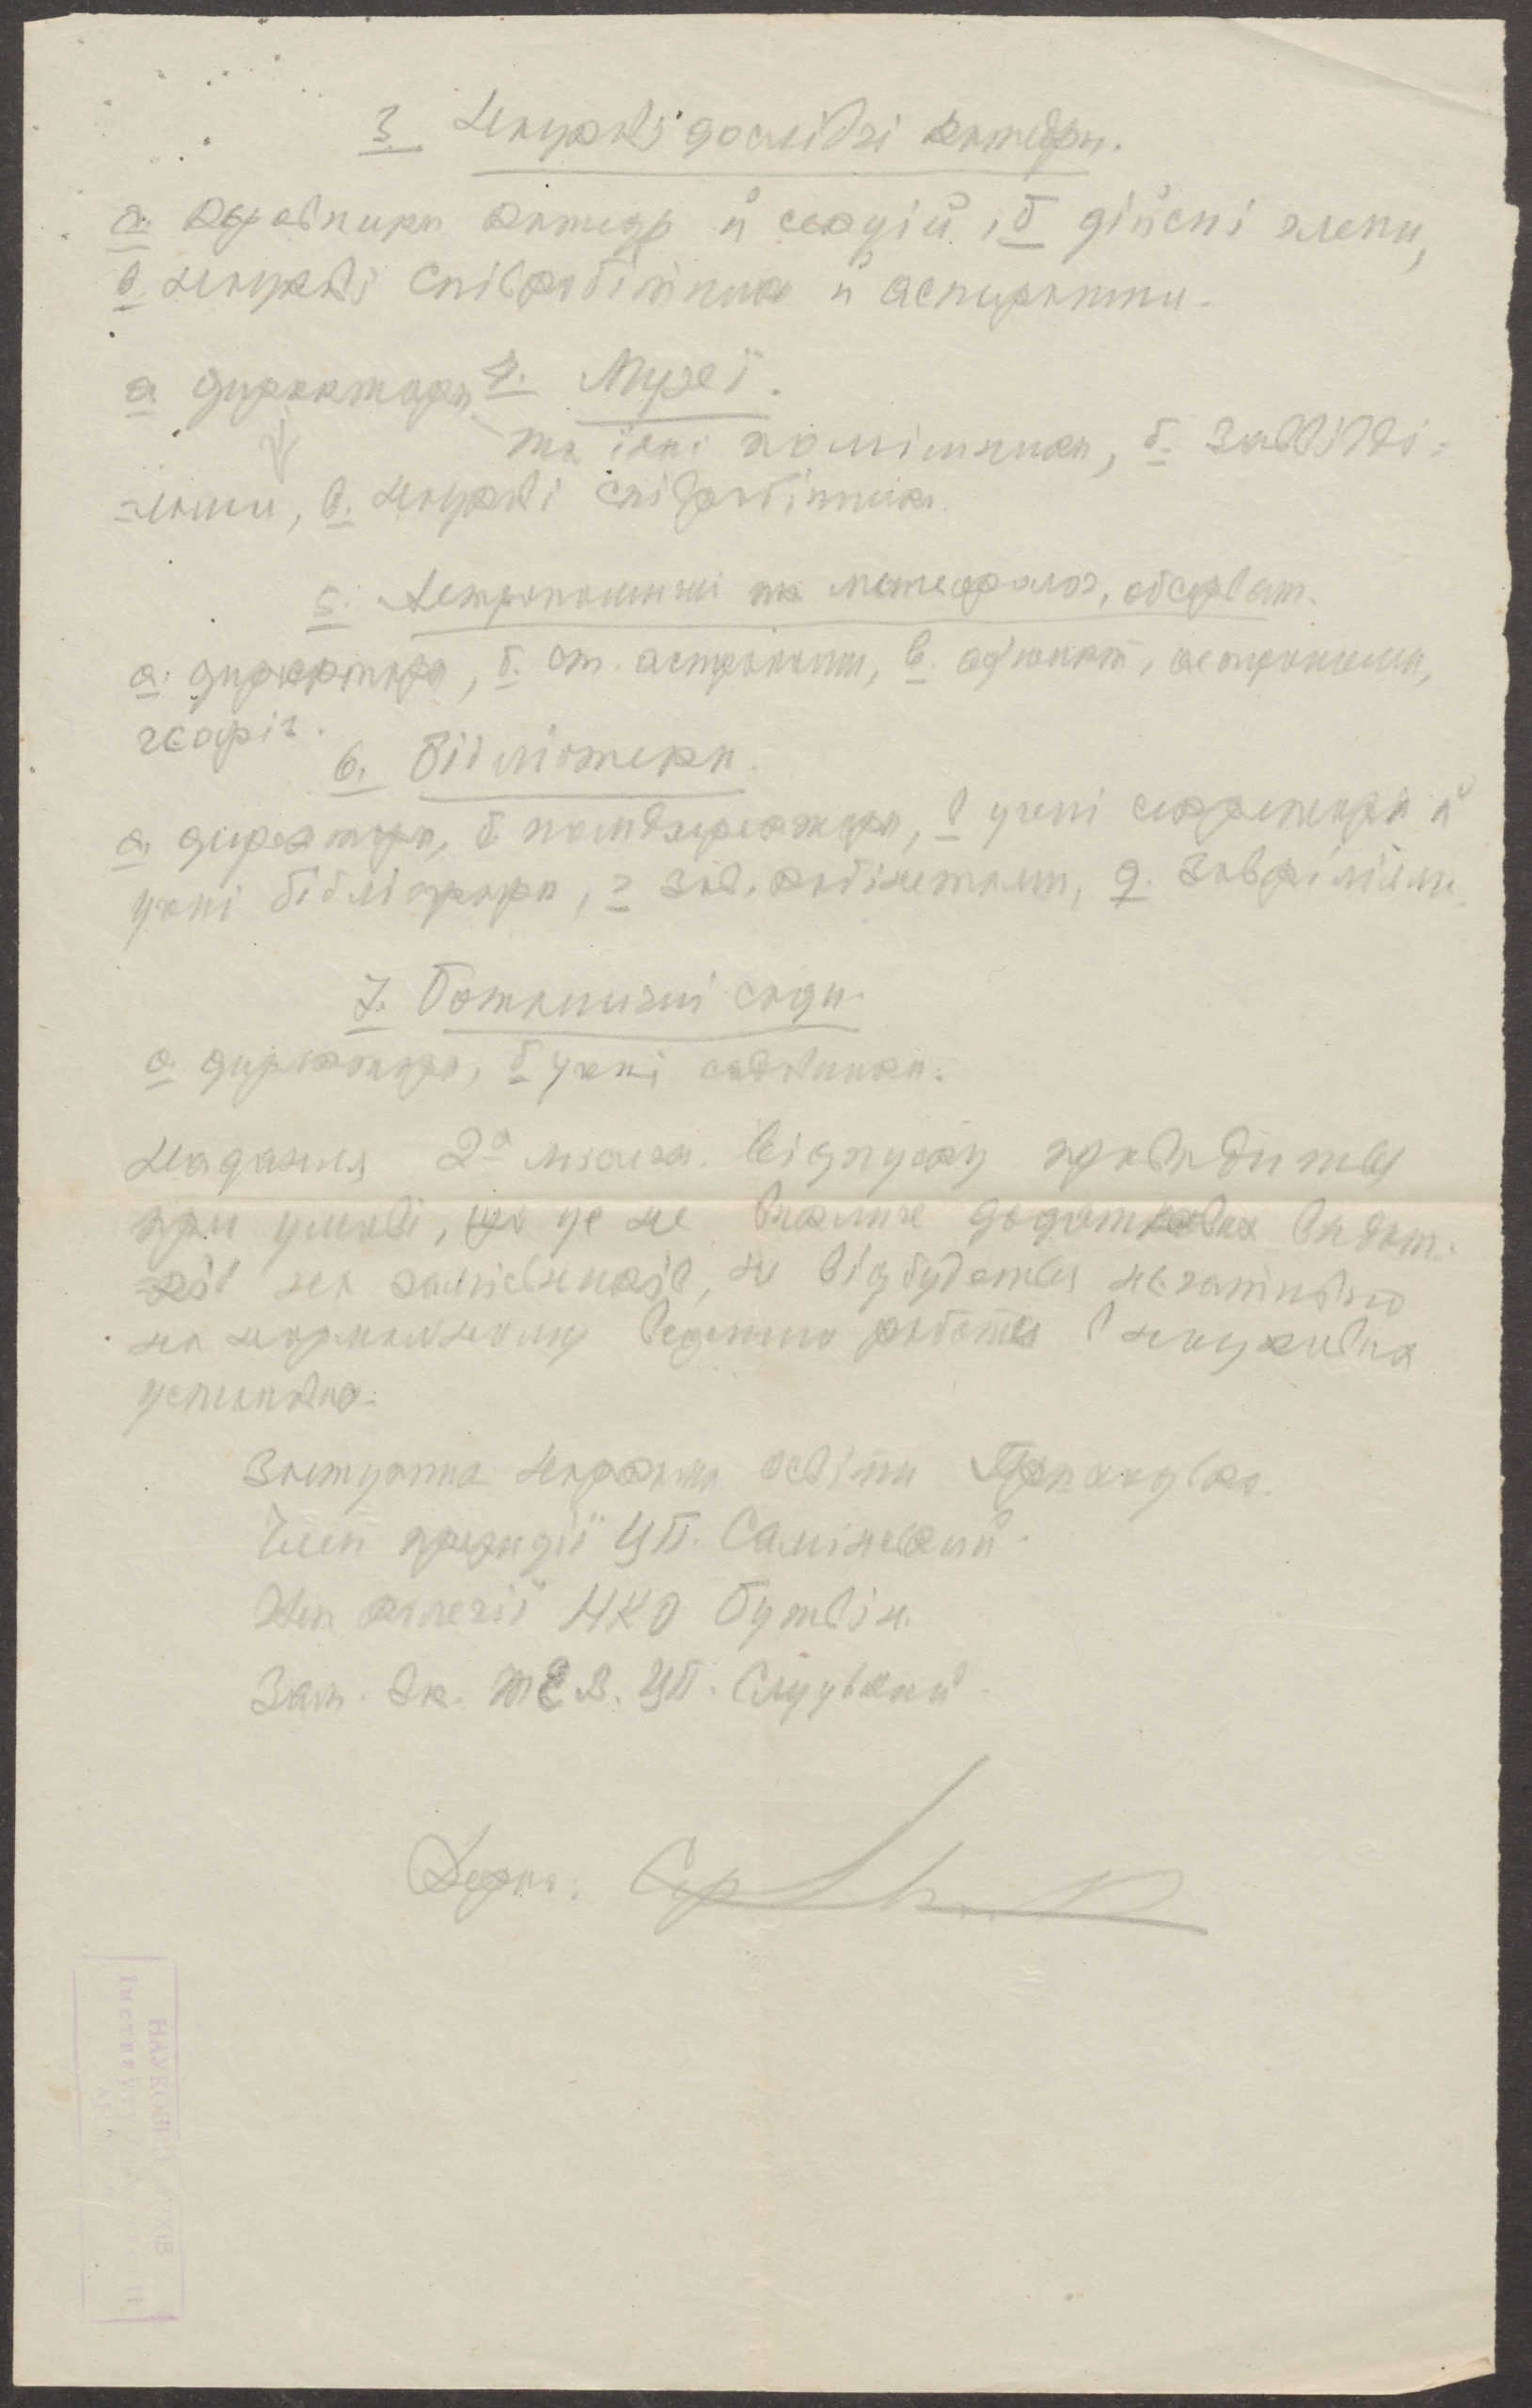 3. Наукові дослідчі катедри.
а. керовники катедр й секцій, б дійсні члени,
в. наукові співробітники й аспиранти.
4. Музеї.
а. директори та їхні помішники, б. завідді-
лами, в. наукові співробітники.
5. Астрономичні та метеоролог. обсерват.
а. директора, б. ст. астрономи, в. ад'юнкт, астрономи,
6. Бібліотеки.
а. директори, б. помдиректора, в учені секретарі й
учені бібліографи, г зав. кабінетами, д. Завфіліями.
7. Ботаничні сади.
а. директора, б учені садівники.
Надання 2х місячн. відпуску проводиться
при умові, що це не викличе додаткових видат-
ків на замісників, не відбудеться негативно
на нормальному веденню роботи в наукових
установах.
Заступник Наркома освіти
Член президії ЦП. Самінський.
Член колегії НКО Бутвін.
Зам. Зав. ТЕВ. ЦП. Слуцький.